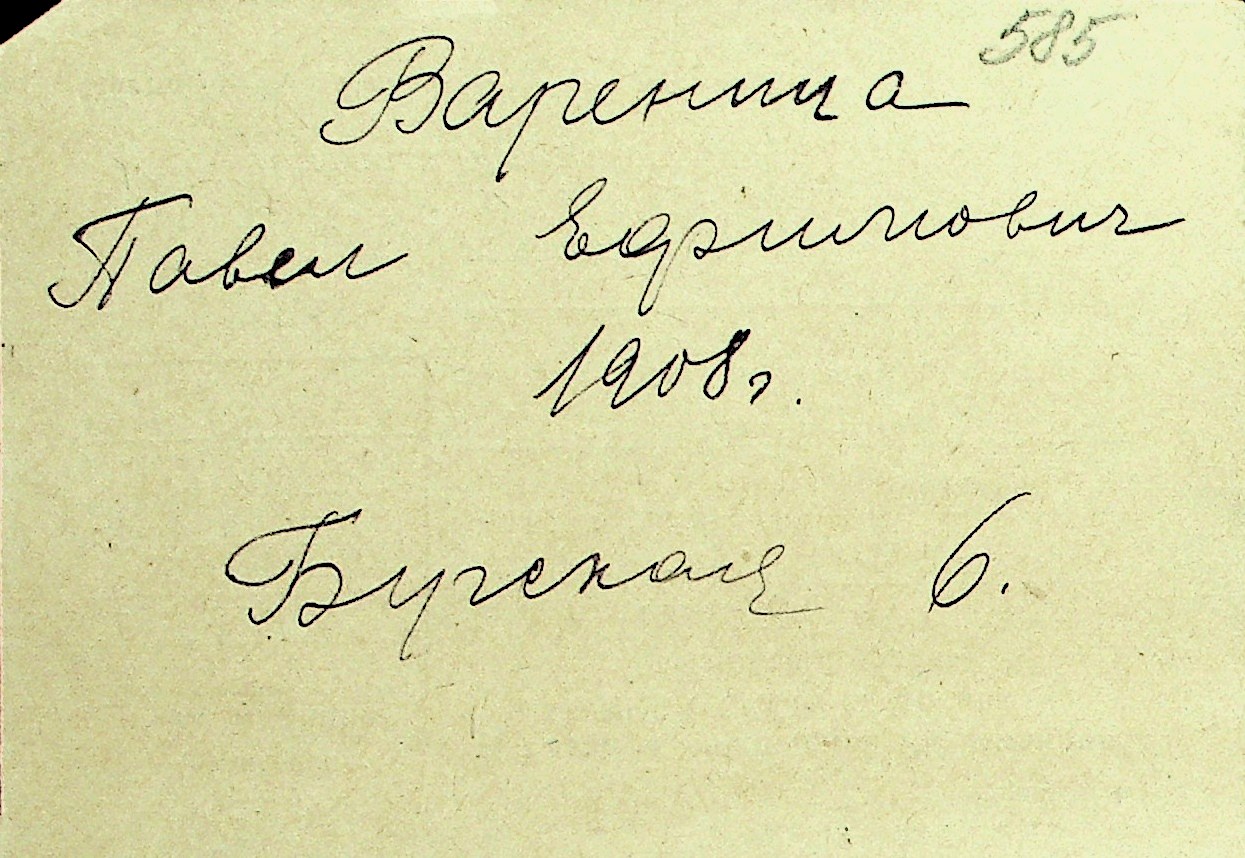 585
Вареница
Павел Ефимович
1908г.
Бугская 6.